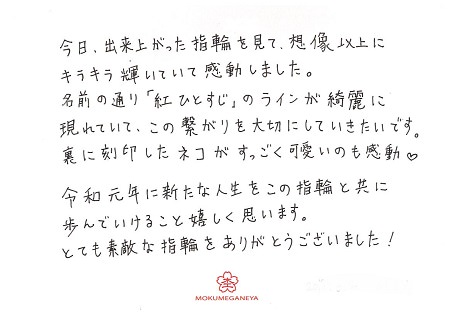 今日、出来上がった指輪を見て、想像以上に
キラキラ輝いていて感動しました。
名前の通り「紅ひとすじ」のラインが綺麗に
現れていて、この繋がりを大切にしていきたいです。
裏に刻印したネコがすっごく可愛いのも感動♡
令和元年に新たな人生をこの指輪と共に
歩んでいけること嬉しく思います。
とても素敵な指輪をありがとうございました!
MOKUMEGANEYA